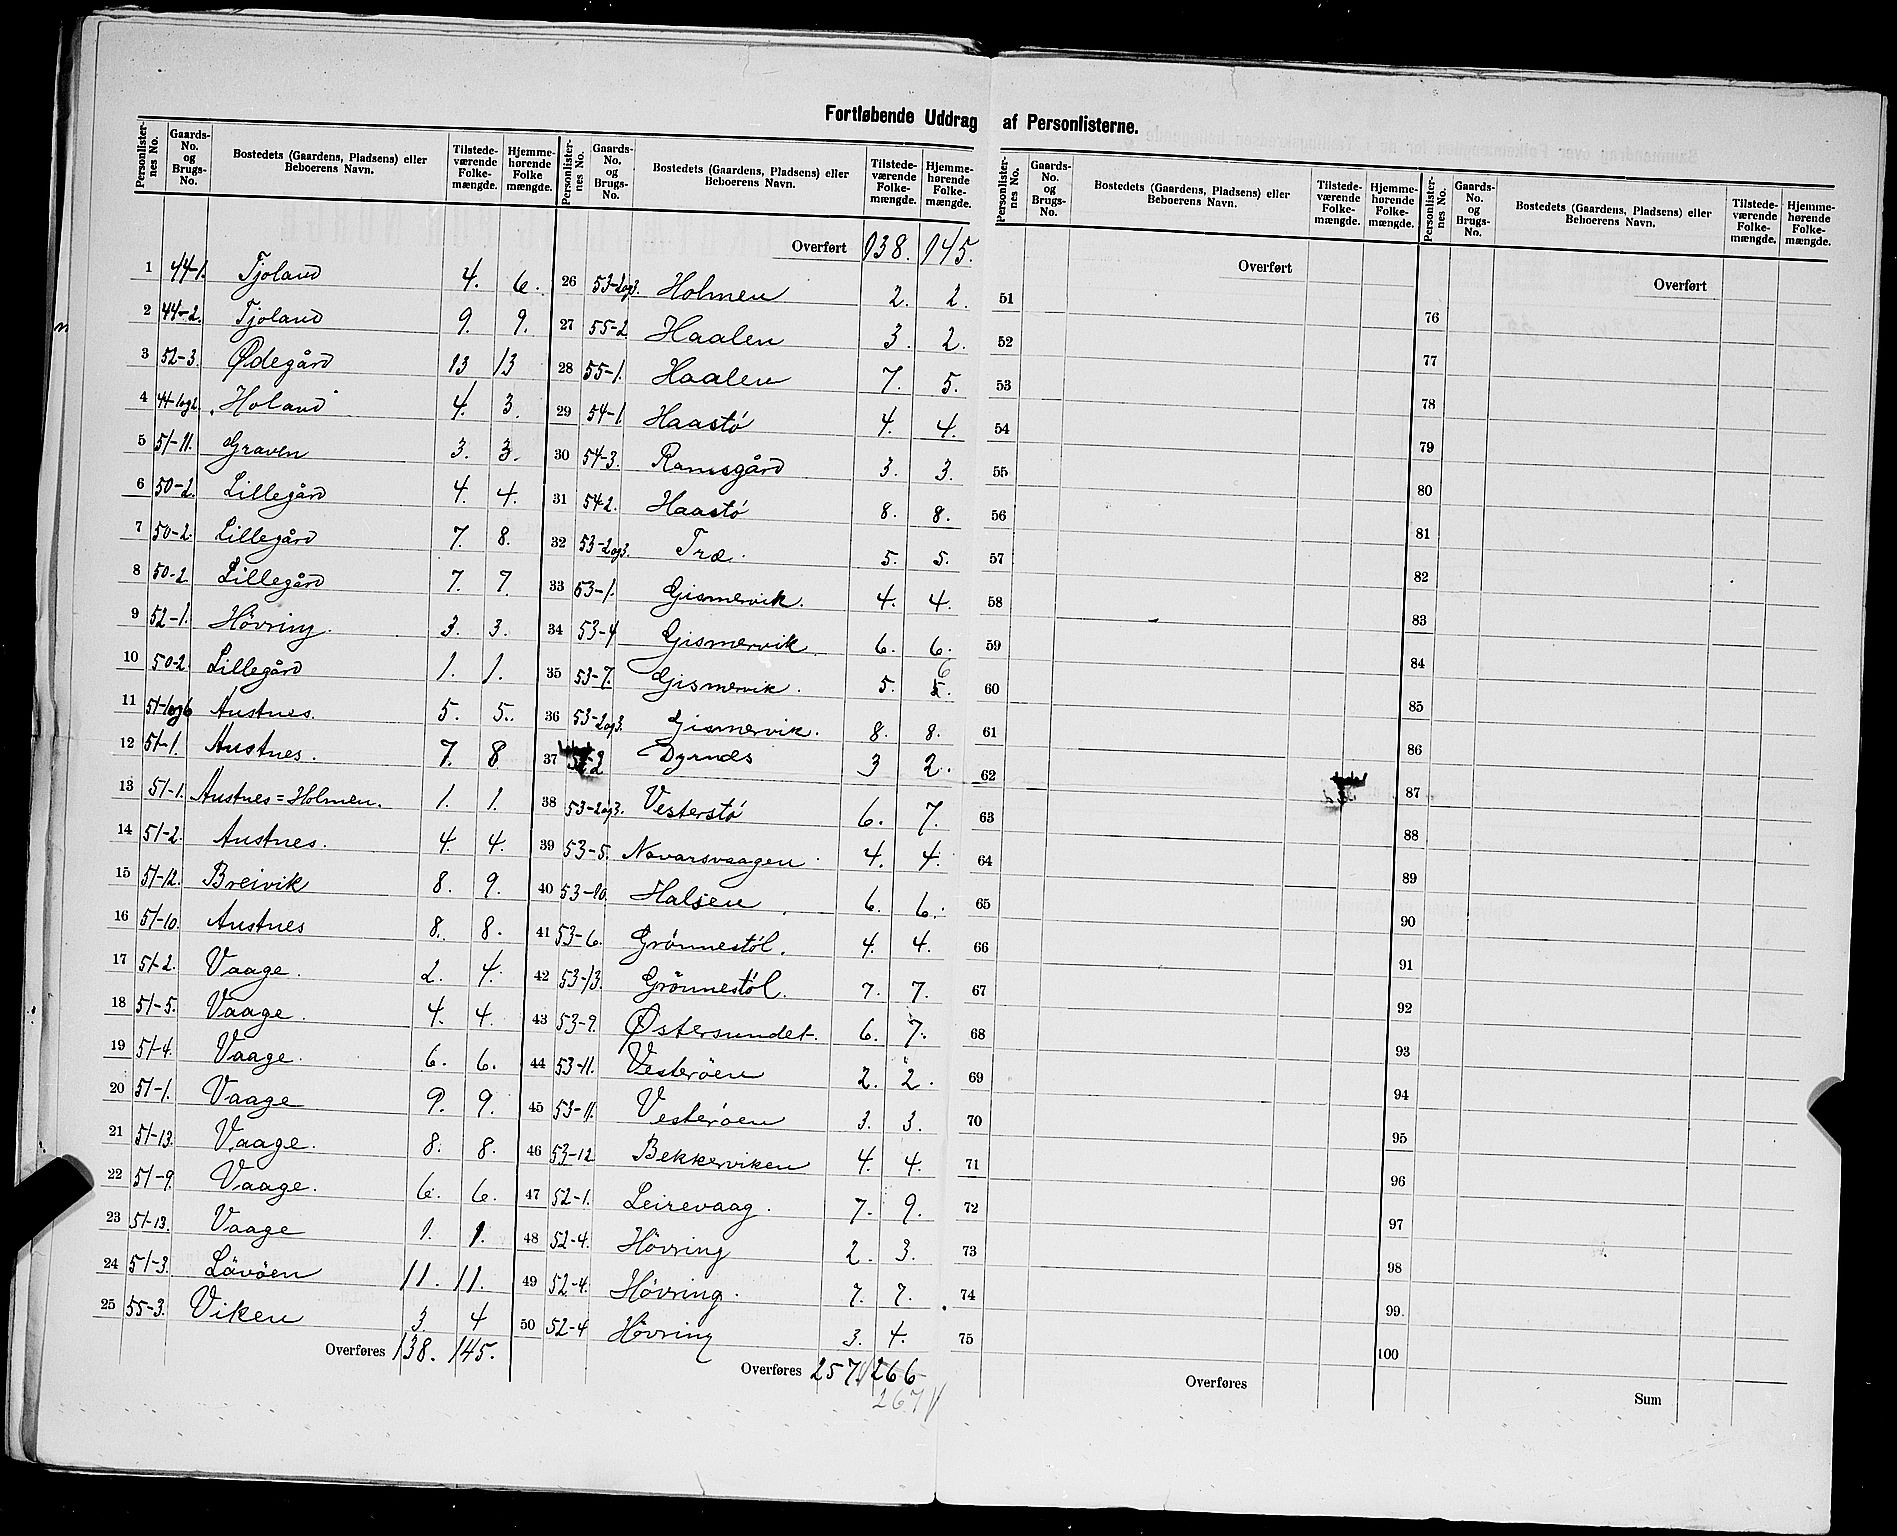 Fortløbende Uddrag af Personlisterne.
Personlisternes No. Gaards-No. og Brugs-No. Bostedets (Gaardens, Pladsens) eller Beboerens Navn. Tilstedeværende Folkemængde. Hjemmehørende Folkemængde.
1 44-1. Tjoland 4. 6.
2 44-2. Tjoland 9. 9.
3 52-3. Ødegård 13 13
4 44-1og2. Holand 4. 3.
5 51-11. Graven 3. 3.
6 50-2. Lillegård 4. 4.
7 50-2. Lillegård 7. 8.
8 50-2 Lillegård 7. 7.
9 52-1. Hövring. 3. 3.
10 50-2. Lillegård 1. 1.
11 51-1og6 Austnes. 5. 5.
12 51-1. Austnes. 7. 8
13 51-1. Austnes=Holmen. 1. 1.
14 51-2. Austnes. 4. 4.
15 51-12. Breivik 8. 9.
16 51-10. Austnes 8. 8.
17 51-2. Vaage. 2. 4.
18 51-5. Vaage. 4. 4.
19 51-4. Vaage. 6. 6.
20 51-1. Vaage 9. 9.
21 51-13. Vaage. 8. 8.
22 51-9. Vaage. 6. 6.
23 51-13. Vaage 1. 1.
24 51-3. Lövöen 11. 11.
25 55-3. Viken 3. 4
Overføres 138. 145.
Personlisternes No. Gaards-No. og Brugs-No. Bostedets (Gaardens, Pladsens) eller Beboerens Navn. Tilstedeværende Folkemængde. Hjemmehørende Folkemængde.
Overført 138. 145.
26 53-2og3. Holmen 2. 2.
27 55-2 Haalen 3. 2.
28 55-1. Haalen 7. 5.
29 54-1. Haastö 4. 4.
30 54-3. Ramsgård 3. 3.
31 54-2. Haastö 8. 8.
32 53-2og3. Træ. 5. 5.
33 53-1. Gismervik. 4. 4.
34 53-4 Gismervik. 6. 6.
35 53-7. Gismervik. 5. 5. 6
36 53-2og3. Gismervik. 8. 8.
37 Dyrnes 3 2.
38 53-2og3. Vesterstö 6. 7.
39 53-5. Navarsvaagen 4. 4.
40 53-10. Halsen 6. 6.
41 53-6. Grönnestöl. 4. 4.
42 53-13. Grönnestöl. 7. 7.
43 53-9. Østersundet. 6. 7.
44 53-11. Vesteröen 2. 2.
45 53-11. Vesteröen 3. 3.
46 53-12 Bekkerviken 4. 4.
47 52-1. Leirevaag. 7. 9.
48 52-4. Hövring 2. 3.
49 52-4. Hövring. 7. 7.
50 52-4 Hövring 3. 4.
Overføres 257 266
267
Personlisternes No. Gaards-No. og Brugs-No. Bostedets (Gaardens, Pladsens) eller Beboerens Navn. Tilstedeværende Folkemængde. Hjemmehørende Folkemængde.
Overført
51
52
53
54
55
56
57
58
59
60
61
62
63
64
65
66
67
68
69
70
71
72
73
74
75
Overføres
Personlisternes No. Gaards-No. og Brugs-No. Bostedets (Gaardens, Pladsens) eller Beboerens Navn. Tilstedeværende Folkemængde. Hjemmehørende Folkemængde.
Overført
76
77
78
79
80
81
82
83
84
85
86
87
88
89
90
91
92
93
94
95
96
97
98
99.
100
Sum